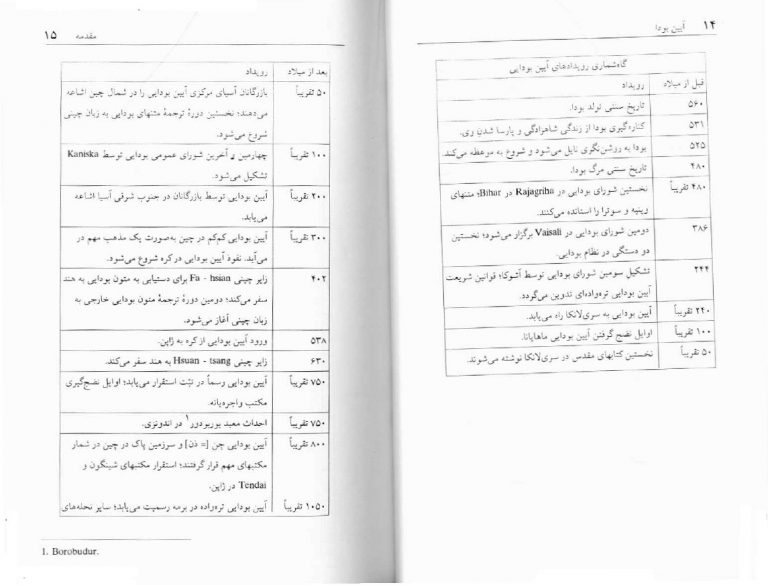 ۱۴ آیین بودا
گاه‌شماری رویدادهای آیین بودایی
قبل از میلاد رویداد
۵۶۰ تاریخ سنتی تولد بودا.
۵۳۱ کناره‌گیری بودا از زندگی شاهزادگی و پارسا شدن وی.
۵۲۵ بودا به روشن‌نگری نایل می‌شود و شروع به موعظه می‌کند.
۴۸۰ تاریخ سنتی مرگ بودا.
۴۸۰ تقریباً نخستین شورای بودایی در Rajagriha در Bihar؛ متنهای
وینیه و سوترا را استانده می‌کنند.
۳۸۶ دومین شورای بودایی در Vaisali برگزار می‌شود؛ نخستین
دو دستگی در نظام بودایی.
۲۴۴ تشکیل سومین شورای بودایی توسط آشوکا؛ قوانین شریعت
آیین بودایی تره‌واده‌ای تدوین می‌گردد.
۲۴۰ تقریباً آیین بودایی به سری‌لانکا راه می‌یابد.
۱۰۰ تقریباً اوایل نضج گرفتن آیین بودایی ماهایانا.
۵۰ تقریباً نخستین کتابهای مقدس در سری‌لانکا نوشته می‌شوند.
مقدمه ۱۵
بعد از میلاد رویداد
۵۰ تقریباً بازرگانان آسیای مرکزی آیین بودایی را در شمال چین اشاعه
می‌دهند؛ نخستین دورهٔ ترجمهٔ متنهای بودایی به زبان چینی
شروع می‌شود.
۱۰۰ تقریباً چهارمین و آخرین شورای عمومی بودایی توسط Kaniska
تشکیل می‌شود.
۲۰۰ تقریباً آیین بودایی توسط بازرگانان در جنوب شرقی آسیا اشاعه
می‌یابد.
۳۰۰ تقریباً آیین بودایی کم‌کم در چین به‌صورت یک مذهب مهم در
می‌آید. نفوذ آیین بودایی در کره شروع می‌شود.
۴۰۲ زایر چینی Fa - hsian برای دستیابی به متون بودایی به هند
سفر می‌کند؛ دومین دورهٔ ترجمهٔ متون بودایی خارجی به
زبان چینی آغاز می‌شود.
۵۳۸ ورود آیین بودایی از کره به ژاپن.
۶۳۰ زایر چینی Hsuan - tsang به هند سفر می‌کند.
۷۵۰ تقریباً آیین بودایی رسماً در تبّت استقرار می‌یابد؛ اوایل نضج‌گیری
مکتب واجره‌یانه.
۷۵۰ تقریباً احداث معبد بوربودور۱ در اندونزی.
۸۰۰ تقریباً آیین بودایی چن [= ذن] و سرزمین پاک در چین در شمار
مکتبهای مهم قرار گرفتند؛ استقرار مکتبهای شینگون و
Tendai در ژاپن.
۱۰۵۰ تقریباً آیین بودایی تره‌واده در برمه رسمیت می‌یابد؛ سایر نحله‌های
1. Borobudur.